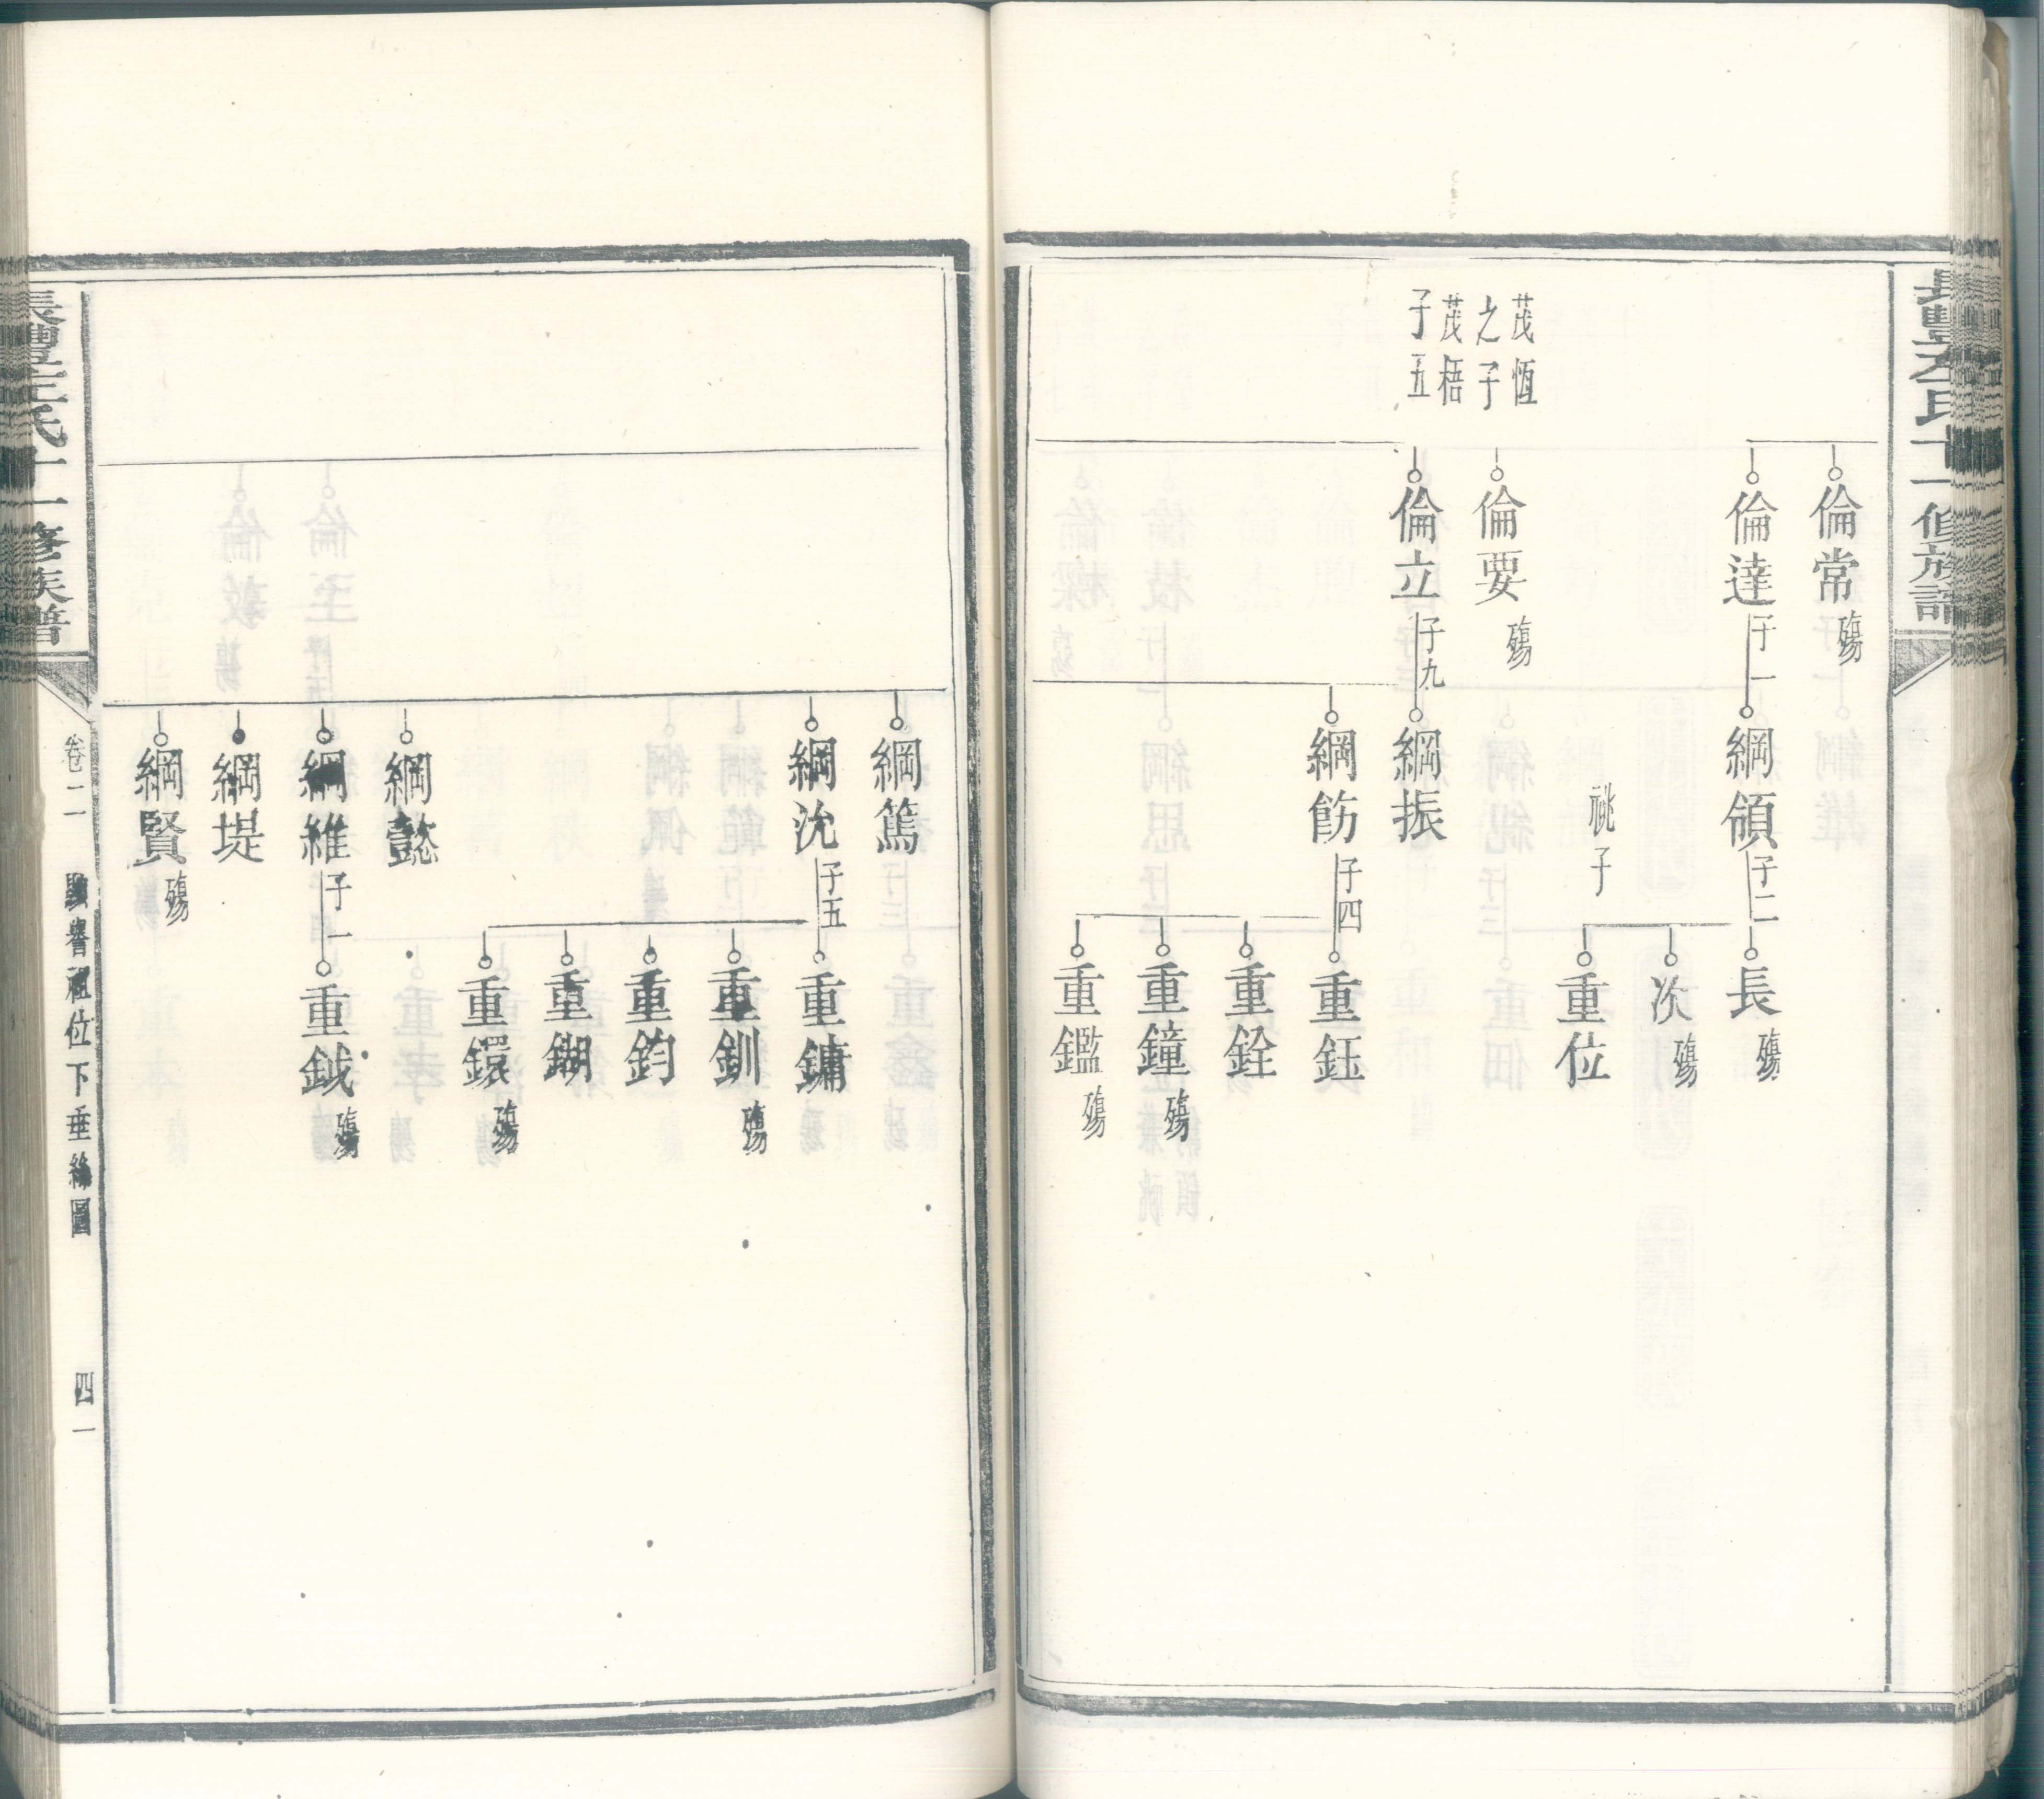 倫常
殤
倫達
子一
綱領
子二
長
殤
次
殤
重位
祧子
茂恆
之子
茂梧
子五
倫要
殤
倫立
子九
綱振
綱飭
子四
重鈺
重銓
重鐘
殤
重鑑
殤
綱篤
綱沇
子五
重鏞
重釧
殤
重鈞
重鍸
重鐶
殤
綱懿
綱維
子一
重鉞
殤
綱堤
綱賢
殤
氏十一修族譜
卷二
譽祖位下垂絲圖
四一